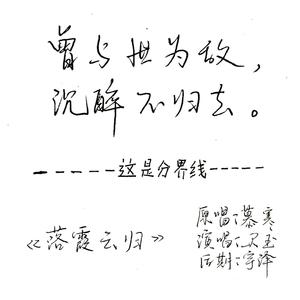 曾与世为敌，
沉醉不归去。
-----这是分界线-----
《落霞云归》
原唱：慕寒
演唱：
后期：宇泽